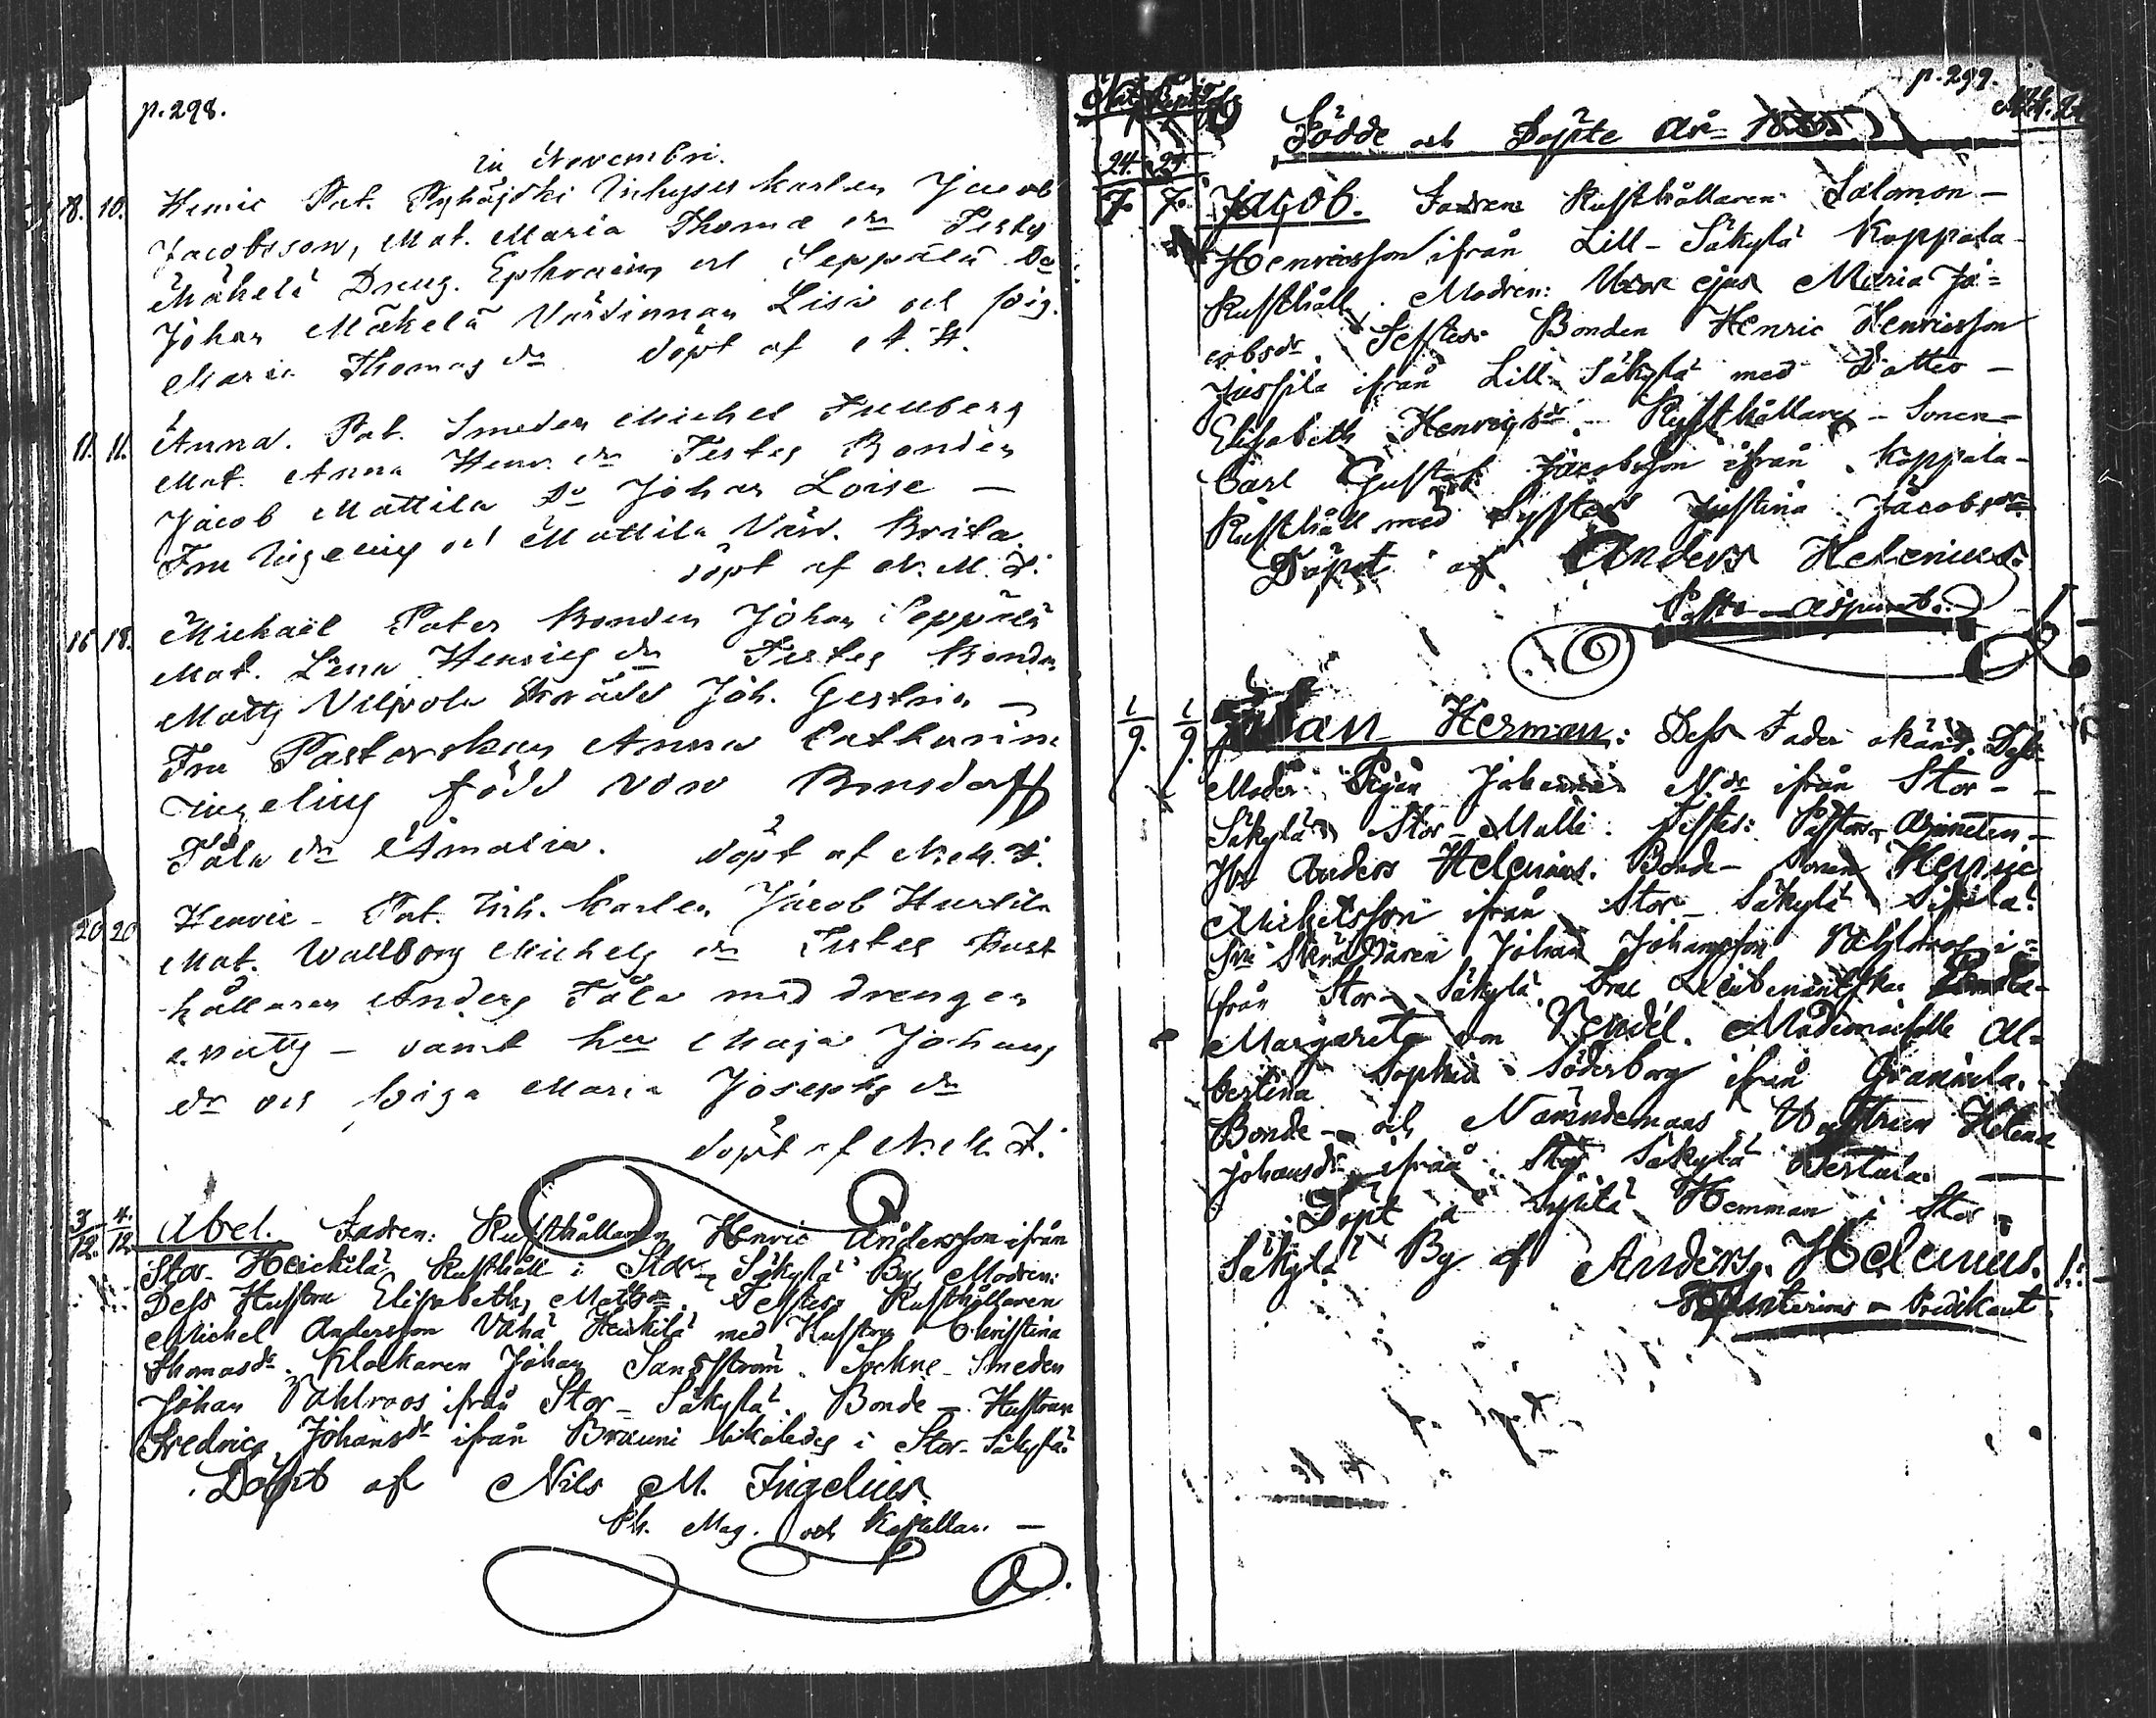 p. 298.
in Novembri.
8. 10. Henric Pat. Pyhäjoki Inhyses karlen Jacob
Jacobsson, Mat. Maria Thomæ dr Testes
Mäkelä Dreng. Ephraim och Seppälä Do
Johan Mäkelä Värdinnan Lisa och pig.
Maria Thomas dr döpt af A. H.
11. 11. Anna. Pat. Smeden Michel Fruberg
Mat. Anna Henr. dr Testes Bonden
Jacob Mattila Do Johan Loise —
Fru Ingelius och Mattila Värd. Brita
döpt af N. M. I.
16 18. Michaël Pater Bonden Johan Seppälä
Mat. Lena Henrics dr Testes Bonden
Matts Vilpola Johan Gestrin —
Fru Pastorskan Anna Catharina
Ingelius född von Bonsdorff
Tåla dr Amalia. döpt af N. M. I.
20 20 Henric — Pat. Inh. Karlen Jacob Hurtila
Mat. Wallborg Michels dr Testes Rust
hållaren Anders Tåla med drengen
Matts — samt hu Maja Johans
dr och piga Maria Josephs dr
döpt af N. M. I.
3/12. 4./12. Abel. Fadren: Rusthållaren Henric Andersson ifrån
Stor-Heickilä Rusthåll i Stor-Säkylä By. Modren:
Dess Hustru Elisabeth Mattsdr. Testes: Rusthållaren
Michel Andersson Vähä Heickilä med Hustru Christina
Thomasdr. Klockaren Johan Sandström. Sockne-Smeden
Johan Vahlroos ifrån Stor-Säkylä. Bonde-Hustrun
Fredrica Johansdr ifrån Brauni i Stor-Säkylä.
Döpt af Nils M. Ingelius.
Ph. Mag. och Kapellan. —
p. 299.
Nat. Bapt.
Födde och Döpte År
24. 29.
7. 7. Jacob. Fadren Rusthållaren Salomon —
Henricsson ifrån Lill-Säkylä Koppala-
Rusthåll. Modren: Uxor ejus Maria Ja=
cobsdr. Testes: Bonden Henric Henricsson
Jussila ifrån Lill-Säkylä med Dotter —
Elisabeth Henricsdr. Rusthållare-Sonen —
Carl Gustaf Jacobsson ifrån Koppala-
Rusthåll med Syster Justina Jacobsdr.
Döpt af Anders Helenius.
Past: Adjunct.
1/9. 1/9. Johan Herman: Dess Fader okänd. Dess
Moder: Pigan Johanna N.dr ifrån Stor-
Säkylä Stor-Mälli. Testes: Pastors-Adjuncten
Hr Anders Helenius. Bonde-Sonen Henric
Michelsson ifrån Stor-Säkylä
Skräddaren Johan Johansson Vahlroos i-
från Stor-Säkylä. Fru Leutenantskan
Margareta von Vendel. Mademoiselle Al-
bertina Sophia Söderborg ifrån Grannila.
Bonde- och Nämndemans Hustrun Helena
Johansdr ifrån Stor Säkylä Vertala. —
Döpt å Hemman i Stor-
Säkylä By af Anders Helenius.
Predikant.